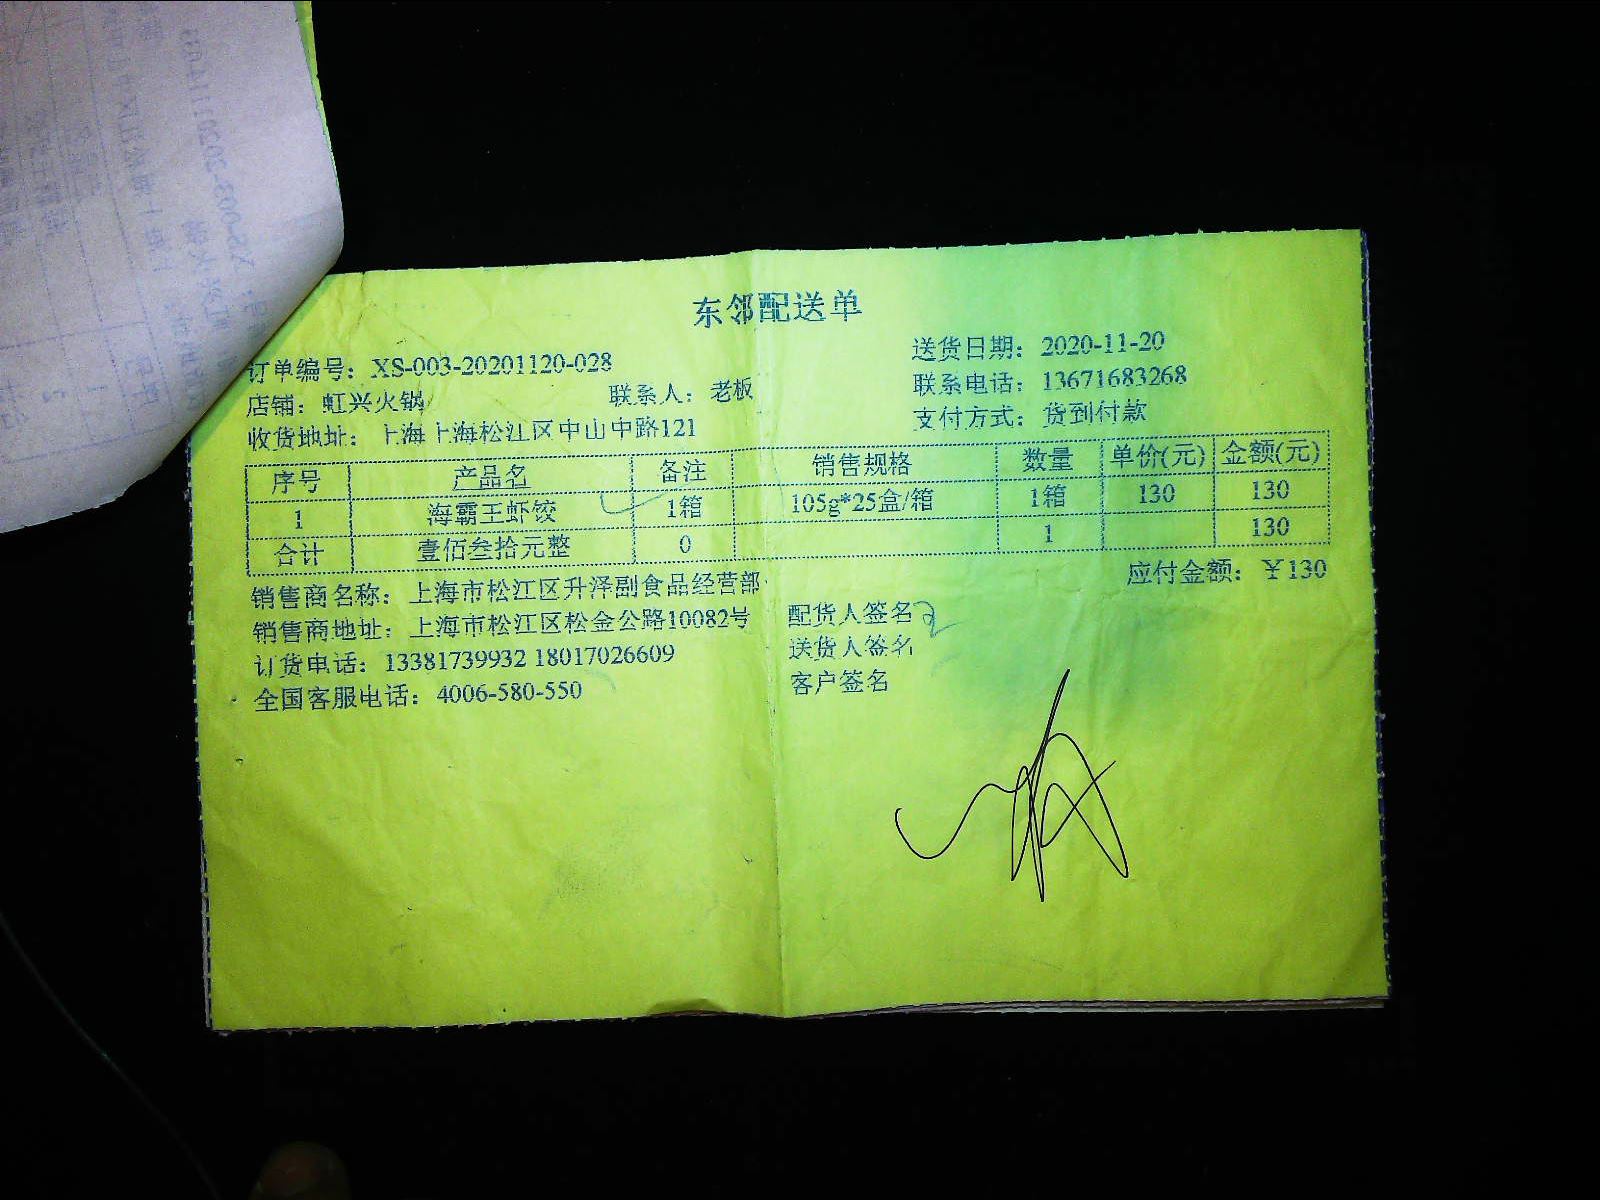 东邻配送单
订单编号：XS-003-20201120-028
送货日期：2020-11-20
店铺：虹兴火锅 联系人：老板
联系电话：13671683268
收货地址：上海上海松江区中山中路121
支付方式：货到付款
序号 产品名 备注 销售规格 数量 单价(元) 金额(元)
1 海霸王虾饺 1箱 105g*25盒/箱 1箱 130 130
合计 壹佰叁拾元整 0 1 130
应付金额：￥130
销售商名称：上海市松江区升泽副食品经营部
销售商地址：上海市松江区松金公路10082号
订货电话：13381739932 18017026609
全国客服电话：4006-580-550
配货人签名
送货人签名
客户签名